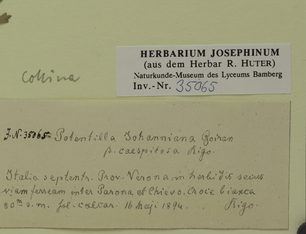 HERBARIUM JOSEPHINUM
(aus dem Herbar R. HUTER)
Naturkunde-Museum des Lyceums Bamberg
Inv.-Nr. 35065
collina
J.N. 35065. Potentilla Johanniana Goiran
β. caespitosa Rigo.
Italia septentr. Prov. Verona in herbidis secus
viam ferream inter Parona et Chievo. Croce bianca
80m s.m. sol. calcar. 16 maji 1894. Rigo.